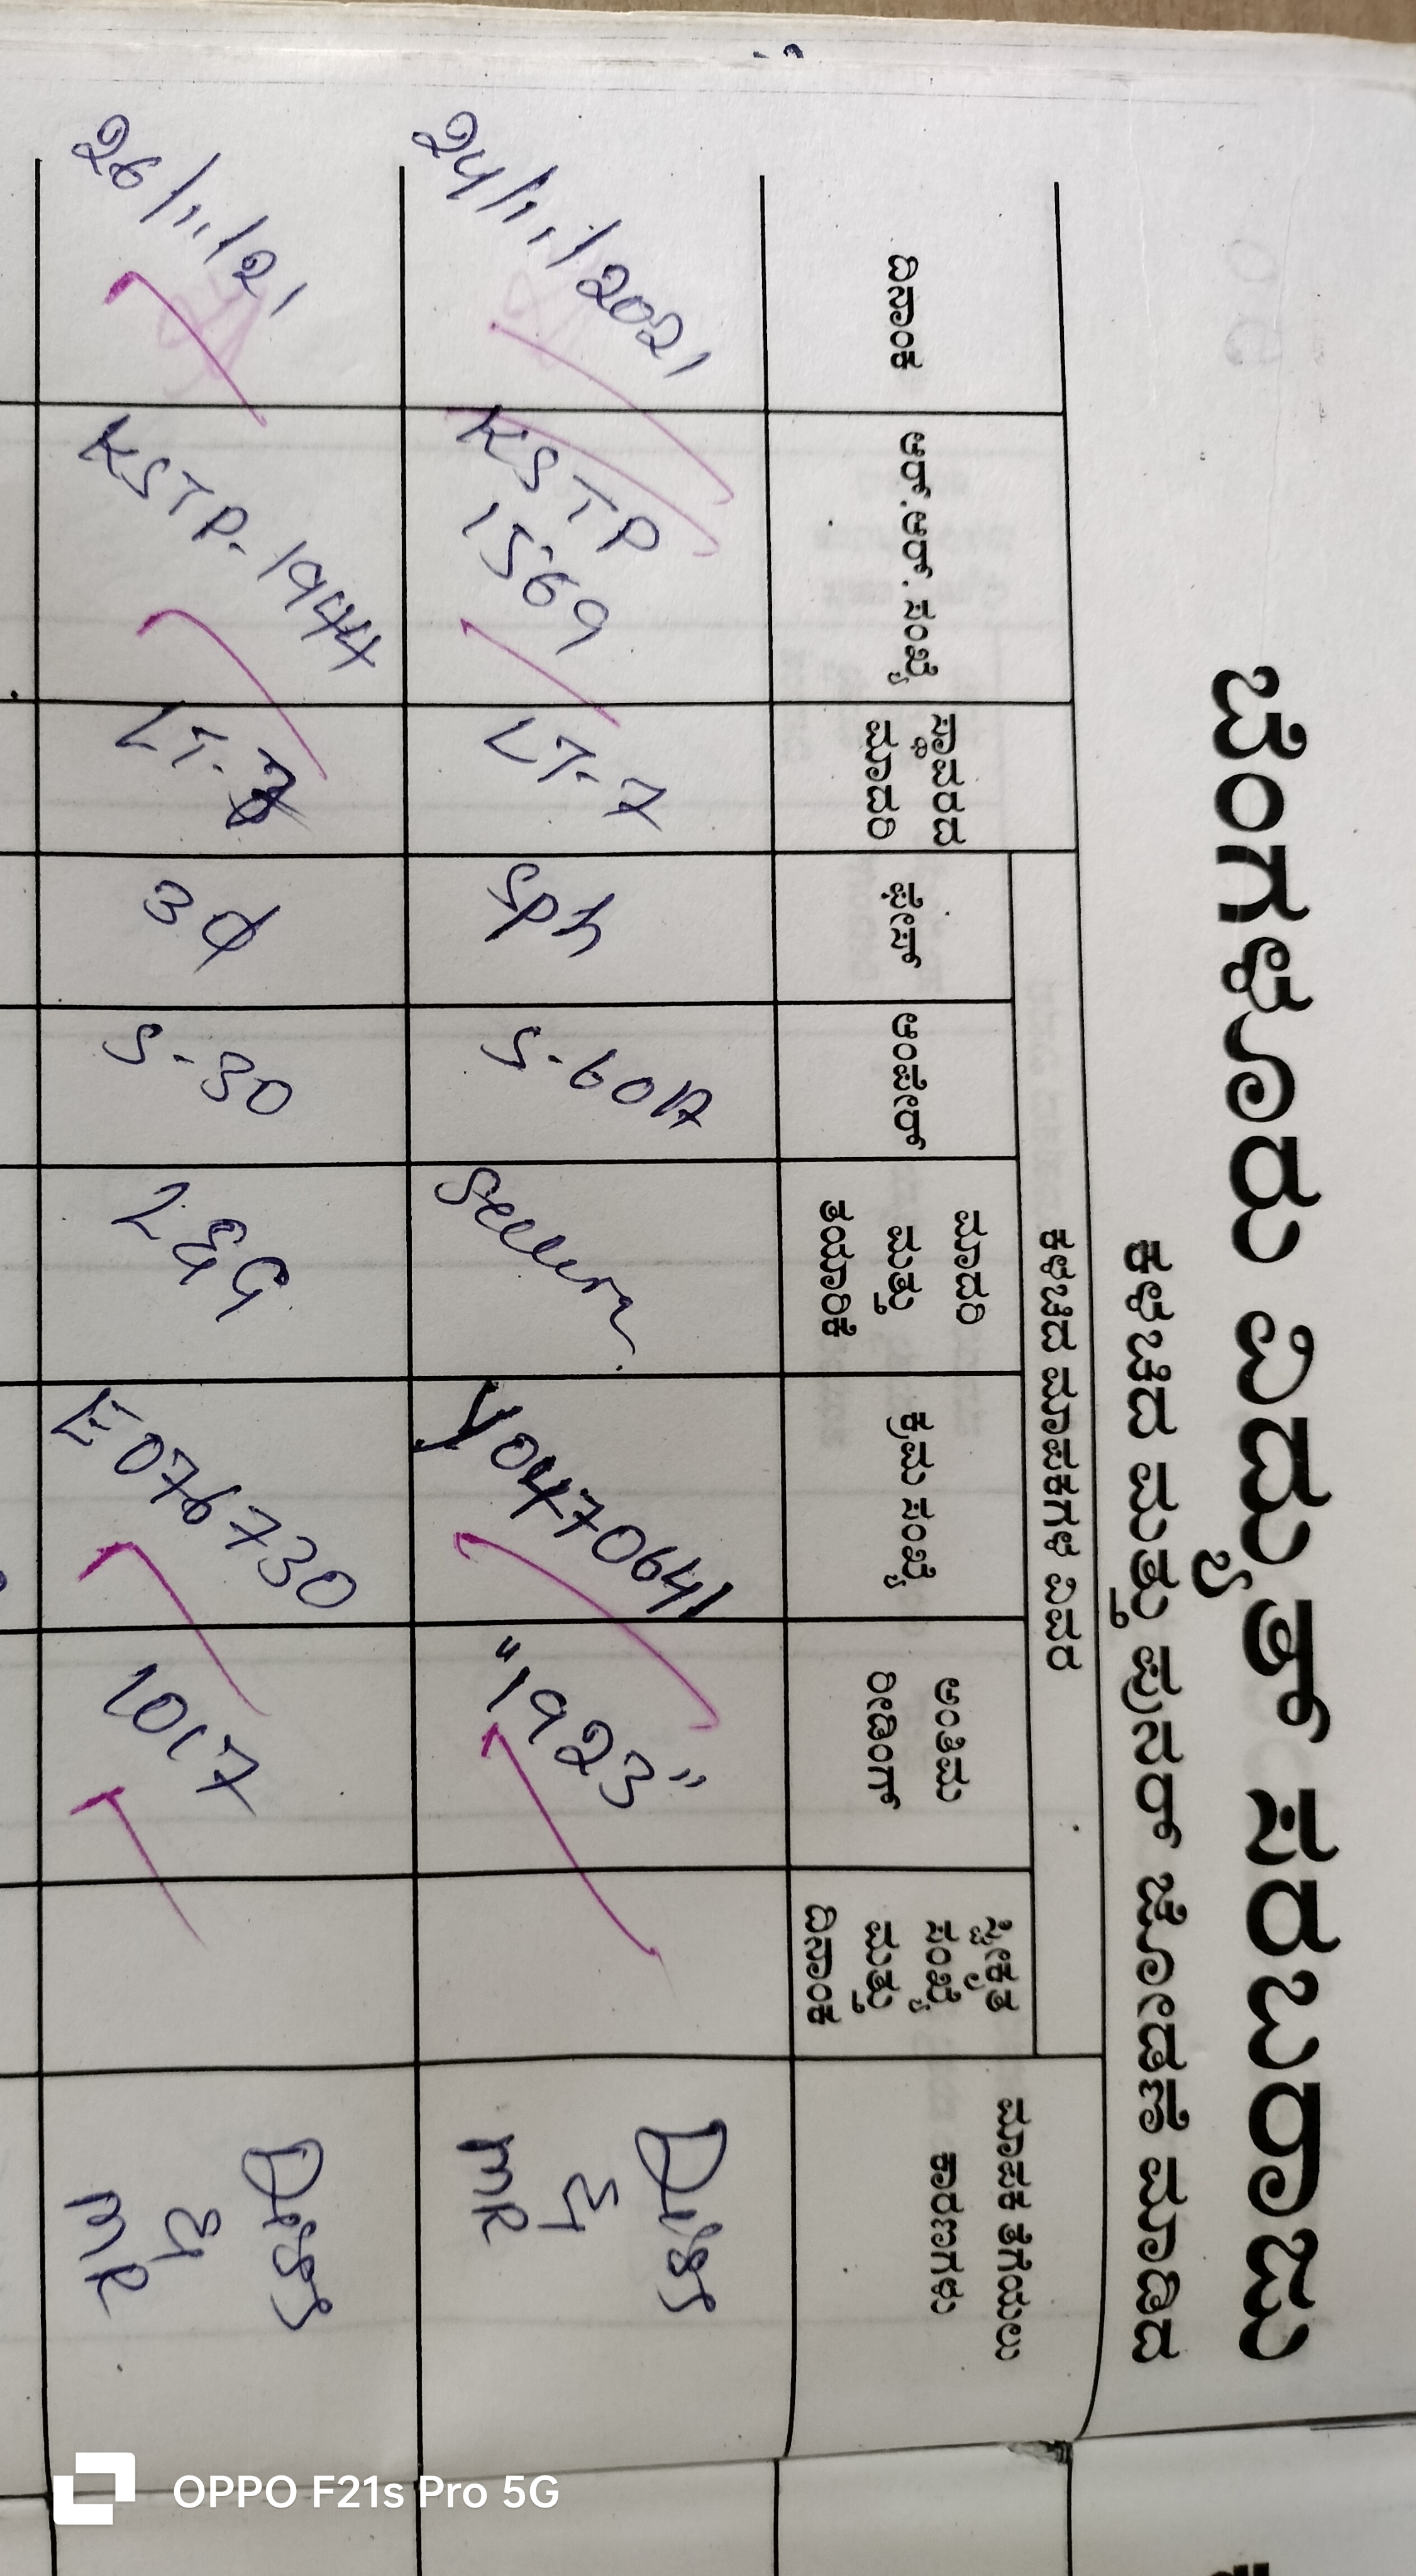 ಬೆಂಗಳೂರು ವಿದ್ಯುತ್ ಸರಬರಾಜು
ಕಳಚಿದ ಮತ್ತು ಪುನರ್ ಜೋಡಣೆ ಮಾಡಿದ
ಕಳಚಿದ ಮಾಪಕಗಳ ವಿವರ
ದಿನಾಂಕ
ಆರ್.ಆರ್. ಸಂಖ್ಯೆ
ಸ್ಥಾವರದ
ಮಾದರಿ
ಫೇಸ್
ಆಂಪೇರ್
ಮಾದರಿ
ಮತ್ತು
ತಯಾರಿಕೆ
ಕ್ರಮ ಸಂಖ್ಯೆ
ಅಂತಿಮ
ರೀಡಿಂಗ್
ಸ್ವೀಕೃತ
ಸಂಖ್ಯೆ
ಮತ್ತು
ದಿನಾಂಕ
ಮಾಪಕ ತೆಗೆಯಲು
ಕಾರಣಗಳು
24/11/2021
KSTP
1569
LT-7
Sph
5-60A
Y0470641
"1923"
&
MR
26/11/21
KSTP-1944
LT-
3φ
5-30
L&G
E076730
1017
&
MR
OPPO F21s Pro 5G